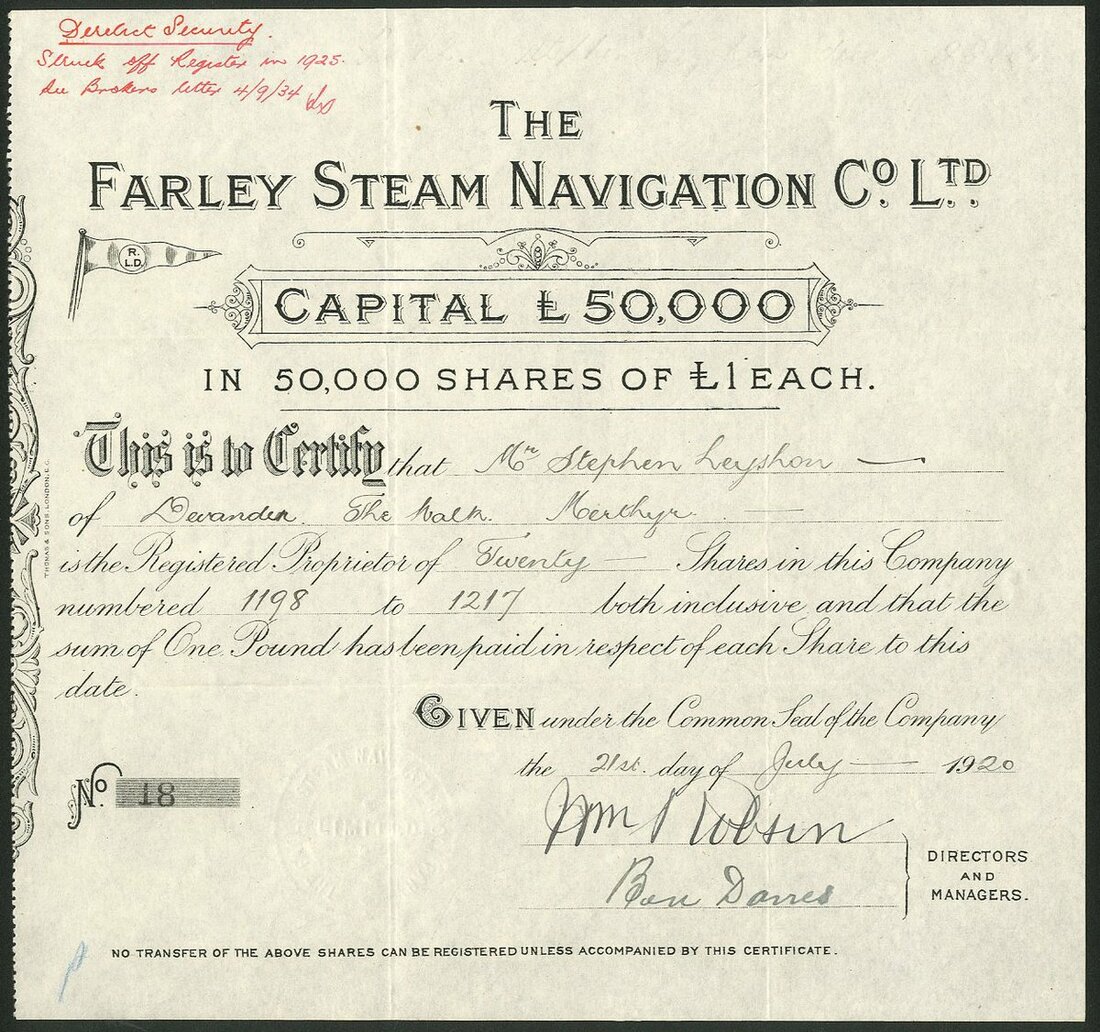 Derelict Security.
Struck off Register in 1925.
See Brokers letter 4/9/34
THE
FARLEY STEAM NAVIGATION Cº. LTD.
R.
L.D.
CAPITAL £50,000
IN 50,000 SHARES OF £1 EACH.
This is to Certify that Mr Stephen Leyshon
of The Walk. Merthyr.
is the Registered Proprietor of Twenty Shares in this Company
numbered 1198 to 1217 both inclusive and that the
sum of One Pound has been paid in respect of each Share to this
date.
GIVEN under the Common Seal of the Company
the 21st. day of July 1920
Nº 18
Wm Robson
Ben Davies
DIRECTORS
AND
MANAGERS.
NO TRANSFER OF THE ABOVE SHARES CAN BE REGISTERED UNLESS ACCOMPANIED BY THIS CERTIFICATE.
THOMAS & SONS LONDON. E.C.